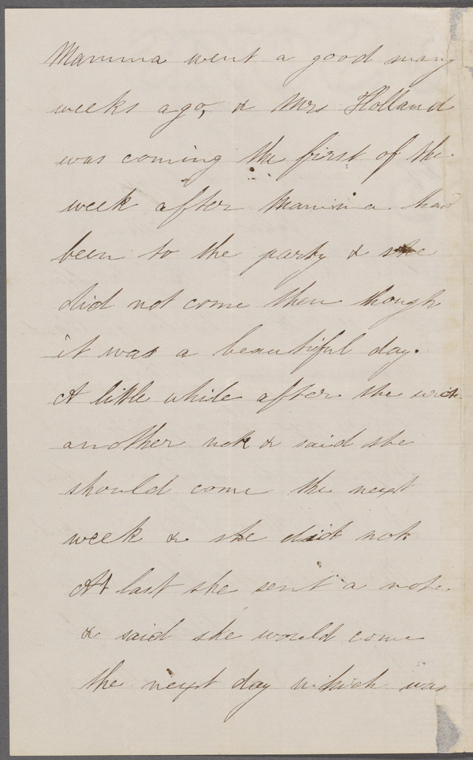 Mamma went a good many
weeks ago, & Mrs Holland
was coming the first of the
week after Mamma had
been to the party & she
did not come then though
it was a beautiful day.
A little while after the wrote
another note & said she
should come the next
week & she did not
At last she sent a note
& said she would come
the next day which was